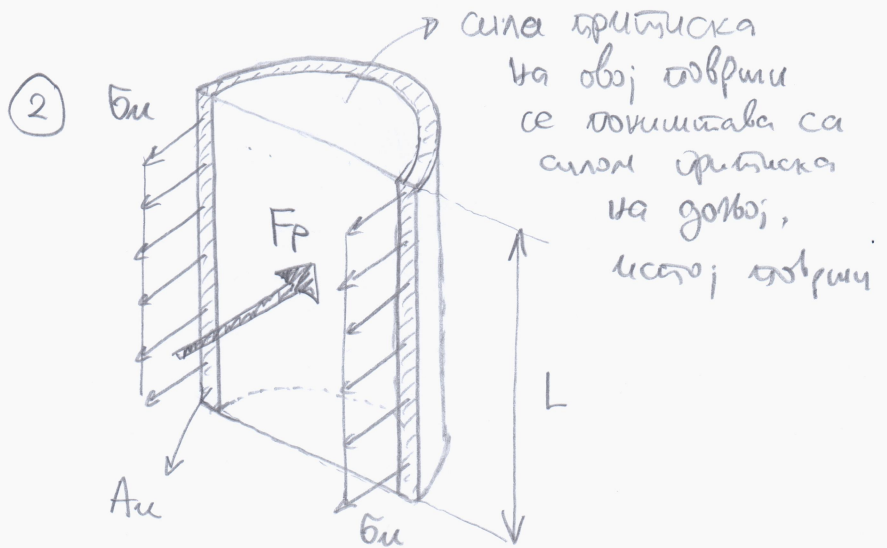 2
сила притиска
на овој површи
се поништава са
силом притиска
на доњој,
истој површи
бм
Fp
L
Ам
бм